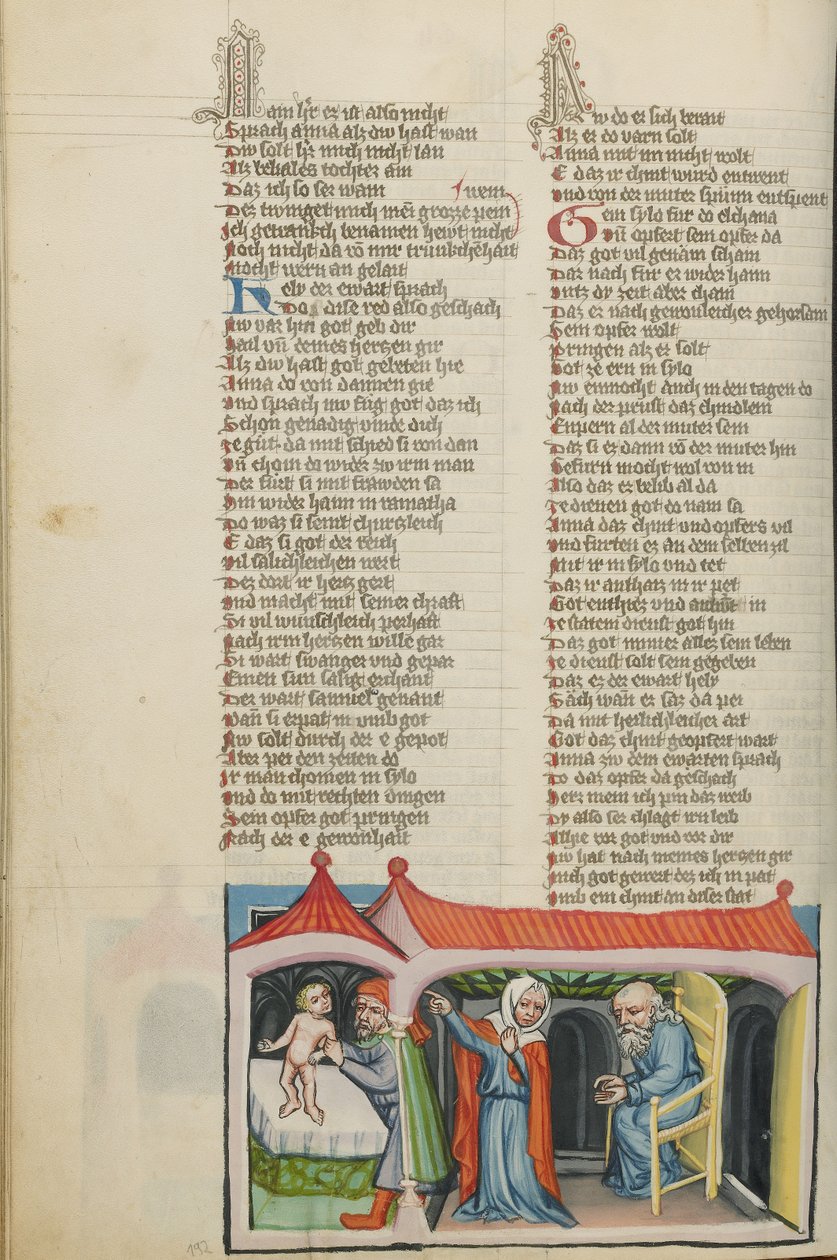 Nain h'r ez ist also nicht
Sprach anna alz dw hast wan
Dw solt h'r mich nicht lan
Alz beliales tochter han
Daz ich so ser wain
wein
Dez twinget mich mei grozze pein
Ich getranch benamen hewt nicht
Noch nicht da vo mir trunkchehait
Mocht wern an gelait
Hely der ewart sprach
Do dise red also geschach
Nw var hin got geb dir
Hail vn deines hertzen gir
Alz dw hast got gebeten hie
Anna do von dannen gie
Und sprach nw fug got daz ich
Schon genadig vinde dich
Ze gut da mit schied si von dan
Vn chom do wider zw irm man
Der furt si mit frawden sa
Hin wider haim in ramatha
Do waz si seint churtzleich
E daz si got der reich
Vil salichleichen wert
Dez dort ir hertz gert
Und macht mit seiner chraft
Si vil wunschleich perhaft
Nach irm hertzen wille gar
Si wart swanger vnd gepar
Einen sun salig erchant
Der wart samuel genant
Wan si erpat in vmb got
Nw solt durch der e gepot
Aber pei den zeiten do
Ir man chomen in sylo
Und do mit rechten dingen
Sein opfer got pringen
Nach der e gewonhait
Nw do er sich berait
Alz er do varn solt
Anna mit im nicht wolt
E daz ir chint wurd entwent
Und von der muter spunn entspent
Gein sylo fur do elchana
Vn opfert sein opfer da
Daz got vil genam scham
Dar nach fur er wider haim
Untz dy zeit aber cham
Daz er nach gewonleicher gehorsam
Sein opfer wolt
Pringen alz er solt
Got ze ern in sylo
Nw emnocht auch in den tagen do
Nach der prust daz chindlein
Enpern al der muter sein
Daz si ez dann vo der muter hin
Gefurn mocht wol von in
Also daz ez belib al da
Ze dienen got do nam sa
Anna daz chint vnd opfers vil
Und furten ez an dem selben zil
Mit ir in sylo vnd tet
Daz ir anthaiz in ir pet
Got enthiez vnd in
Ze statem dienst got hin
Daz got immer allez sein leben
Ze dienst solt sein gegeben
Daz ez der ewart hely
Sach wan er saz da pei
Da mit herlichleicher art
Got daz chint geopfert wart
Anna zw dem ewarten sprach
Do daz opfer da geschach
Herz mein ich pin daz weib
Dy also ser chlagt irn leib
Alhie vor got vnd vor dir
Nw hat nach meines hertzen gir
Mich got gewert dez ich in pat
Umb ein chint an diser stat
192